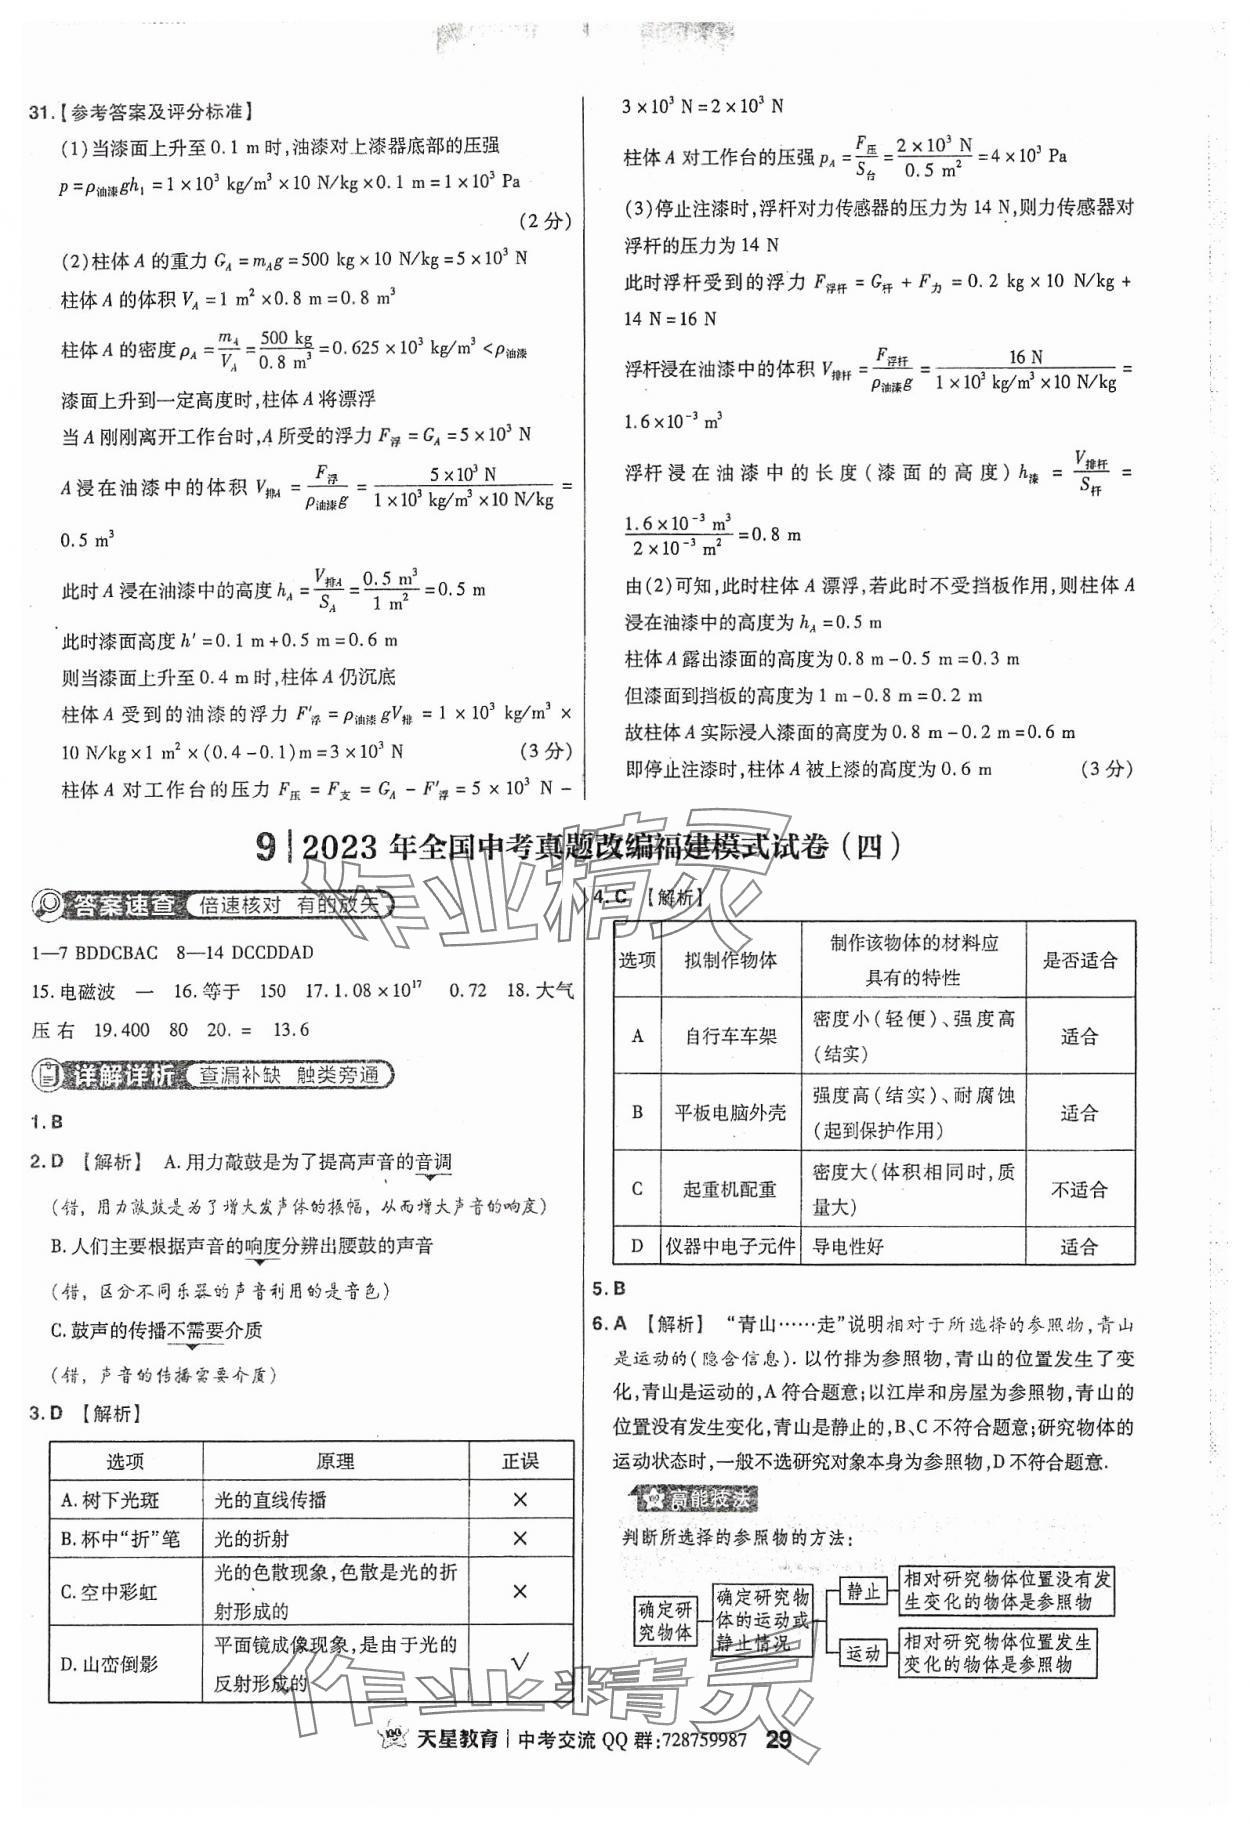 31.【参考答案及评分标准】
(1)当漆面上升至0.1 m时,油漆对上漆器底部的压强
p=ρ油漆gh₁=1×10³ kg/m³×10 N/kg×0.1 m=1×10³ Pa
(2分)
(2)柱体A的重力G_A=m_Ag=500 kg×10 N/kg=5×10³ N
柱体A的体积V_A=1 m²×0.8 m=0.8 m³
柱体A的密度ρ_A=m_A/V_A=500 kg/0.8 m³=0.625×10³ kg/m³<ρ油漆
漆面上升到一定高度时,柱体A将漂浮
当A刚刚离开工作台时,A所受的浮力F浮=G_A=5×10³ N
A浸在油漆中的体积V排A=F浮/ρ油漆g=5×10³ N/1×10³ kg/m³×10 N/kg=
0.5 m³
此时A浸在油漆中的高度h_A=V排A/S_A=0.5 m³/1 m²=0.5 m
此时漆面高度h'=0.1 m+0.5 m=0.6 m
则当漆面上升至0.4 m时,柱体A仍沉底
柱体A受到的油漆的浮力F'浮=ρ油漆gV排=1×10³ kg/m³×
10 N/kg×1 m²×(0.4-0.1)m=3×10³ N (3分)
柱体A对工作台的压力F压=F支=G_A-F'浮=5×10³ N-
3×10³ N=2×10³ N
柱体A对工作台的压强p_A=F压/S台=2×10³ N/0.5 m²=4×10³ Pa
(3)停止注漆时,浮杆对力传感器的压力为14 N,则力传感器对
浮杆的压力为14 N
此时浮杆受到的浮力F浮杆=G杆+F力=0.2 kg×10 N/kg+
14 N=16 N
浮杆浸在油漆中的体积V排杆=F浮杆/ρ油漆g=16 N/1×10³ kg/m³×10 N/kg=
1.6×10⁻³ m³
浮杆浸在油漆中的长度(漆面的高度)h漆=V排杆/S杆=
1.6×10⁻³ m³/2×10⁻³ m²=0.8 m
由(2)可知,此时柱体A漂浮,若此时不受挡板作用,则柱体A
浸在油漆中的高度为h_A=0.5 m
柱体A露出漆面的高度为0.8 m-0.5 m=0.3 m
但漆面到挡板的高度为1 m-0.8 m=0.2 m
故柱体A实际浸入漆面的高度为0.8 m-0.2 m=0.6 m
即停止注漆时,柱体A被上漆的高度为0.6 m (3分)
9|2023年全国中考真题改编福建模式试卷(四)
答案速查 倍速核对 有的放矢
1—7 BDDCBAC 8—14 DCCDDAD
15.电磁波 一 16.等于 150 17.1.08×10¹⁷ 0.72 18.大气
压 右 19.400 80 20.= 13.6
详解详析 查漏补缺 触类旁通
1.B
2.D 【解析】 A.用力敲鼓是为了提高声音的音调
(错,用力敲鼓是为了增大发声体的振幅,从而增大声音的响度)
B.人们主要根据声音的响度分辨出腰鼓的声音
(错,区分不同乐器的声音利用的是音色)
C.鼓声的传播不需要介质
(错,声音的传播需要介质)
3.D 【解析】
选项 原理 正误
A.树下光斑 光的直线传播 ×
B.杯中“折”笔 光的折射 ×
C.空中彩虹 光的色散现象,色散是光的折
射形成的 ×
D.山峦倒影 平面镜成像现象,是由于光的
反射形成的 √
4.C 【解析】
选项 拟制作物体 制作该物体的材料应
具有的特性 是否适合
A 自行车车架 密度小(轻便)、强度高
(结实) 适合
B 平板电脑外壳 强度高(结实)、耐腐蚀
(起到保护作用) 适合
C 起重机配重 密度大(体积相同时,质
量大) 不适合
D 仪器中电子元件 导电性好 适合
5.B
6.A 【解析】 “青山……走”说明相对于所选择的参照物,青山
是运动的(隐含信息).以竹排为参照物,青山的位置发生了变
化,青山是运动的,A符合题意;以江岸和房屋为参照物,青山的
位置没有发生变化,青山是静止的,B、C不符合题意;研究物体的
运动状态时,一般不选研究对象本身为参照物,D不符合题意.
高能技法
判断所选择的参照物的方法:
确定研
究物体
确定研究物
体的运动或
静止情况
静止
相对研究物体位置没有发
生变化的物体是参照物
运动
相对研究物体位置发生
变化的物体是参照物
作业精灵
作业精灵
天星教育|中考交流QQ群:728759987 29